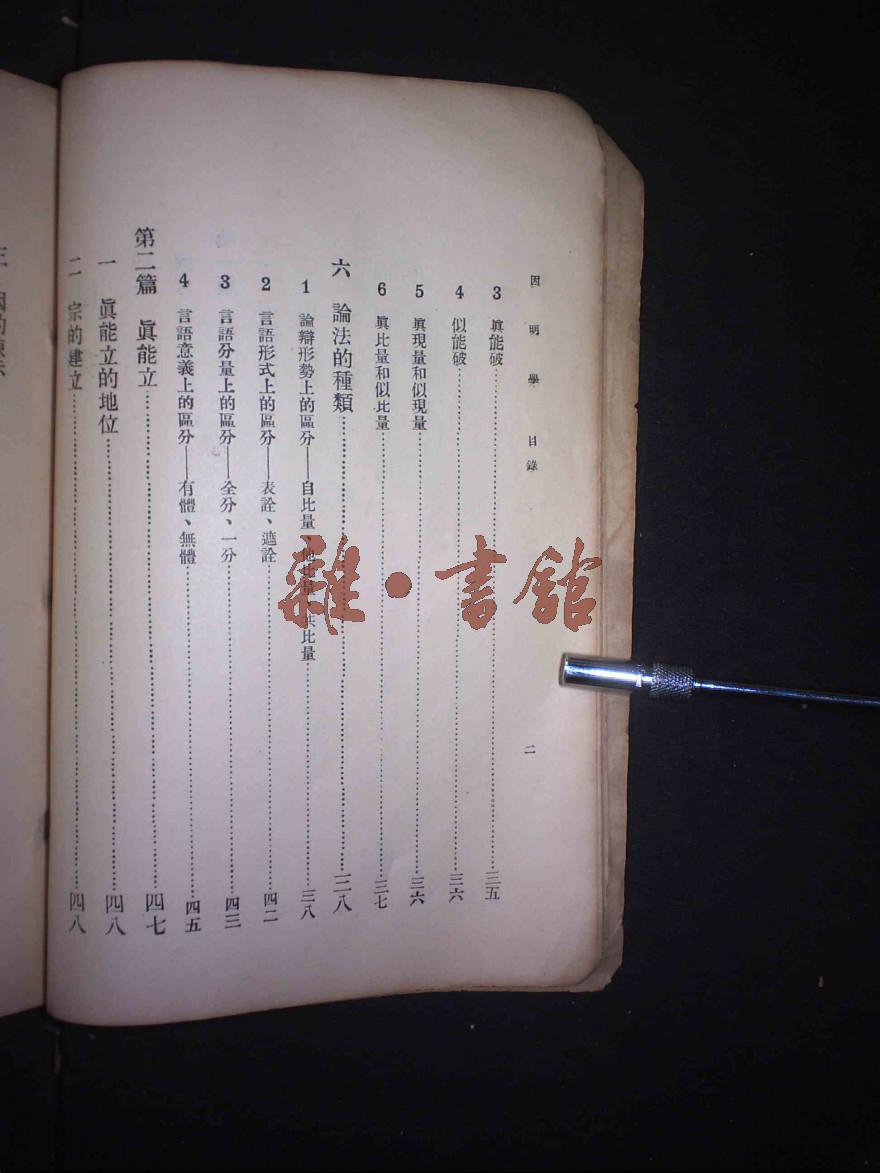 因明學 目錄 二
3 眞能破 三五
4 似能破 三六
5 眞現量和似現量 三六
6 眞比量和似比量 三七
六 論法的種類 三八
1 論辯形勢上的區分——自比量 比量 比量 三八
2 言語形式上的區分——表詮、遮詮 四二
3 言語分量上的區分——全分、一分 四三
4 言語意義上的區分——有體、無體 四五
第二篇 眞能立 四七
一 眞能立的地位 四八
二 宗的建立 四八
三
雜·書館